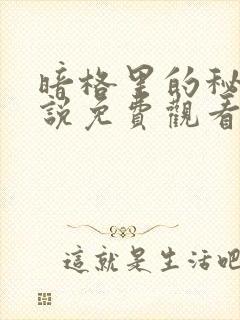 暗格里的秘
說免費觀看
這就是生活吧